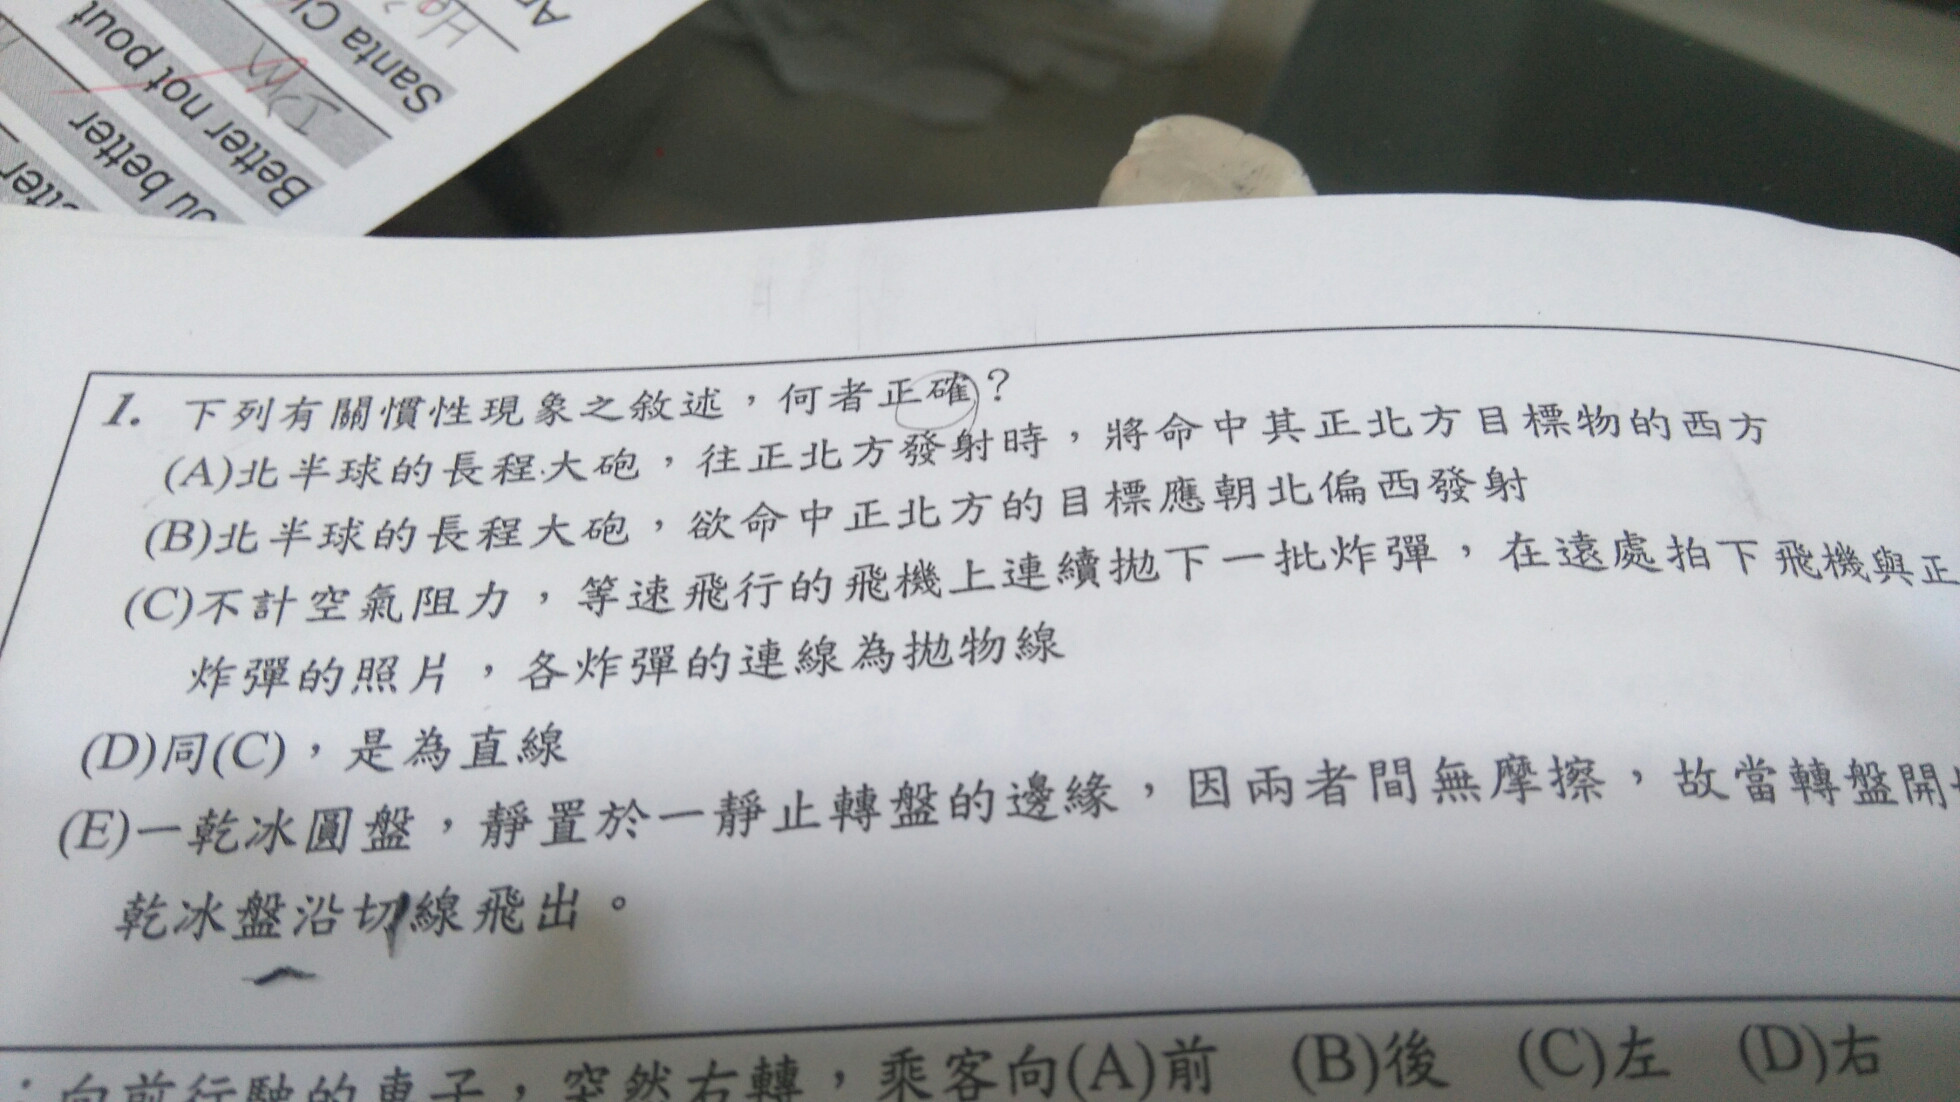 Santa Cl
Better not pout
ou better
tter
I'm
He
1. 下列有關慣性現象之敘述，何者正確？
(A)北半球的長程大砲，往正北方發射時，將命中其正北方目標物的西方
(B)北半球的長程大砲，欲命中正北方的目標應朝北偏西發射
(C)不計空氣阻力，等速飛行的飛機上連續拋下一批炸彈，在遠處拍下飛機與正
炸彈的照片，各炸彈的連線為拋物線
(D)同(C)，是為直線
(E)一乾冰圓盤，靜置於一靜止轉盤的邊緣，因兩者間無摩擦，故當轉盤開
乾冰盤沿切線飛出。
：向前行駛的車子，突然右轉，乘客向(A)前 (B)後 (C)左 (D)右